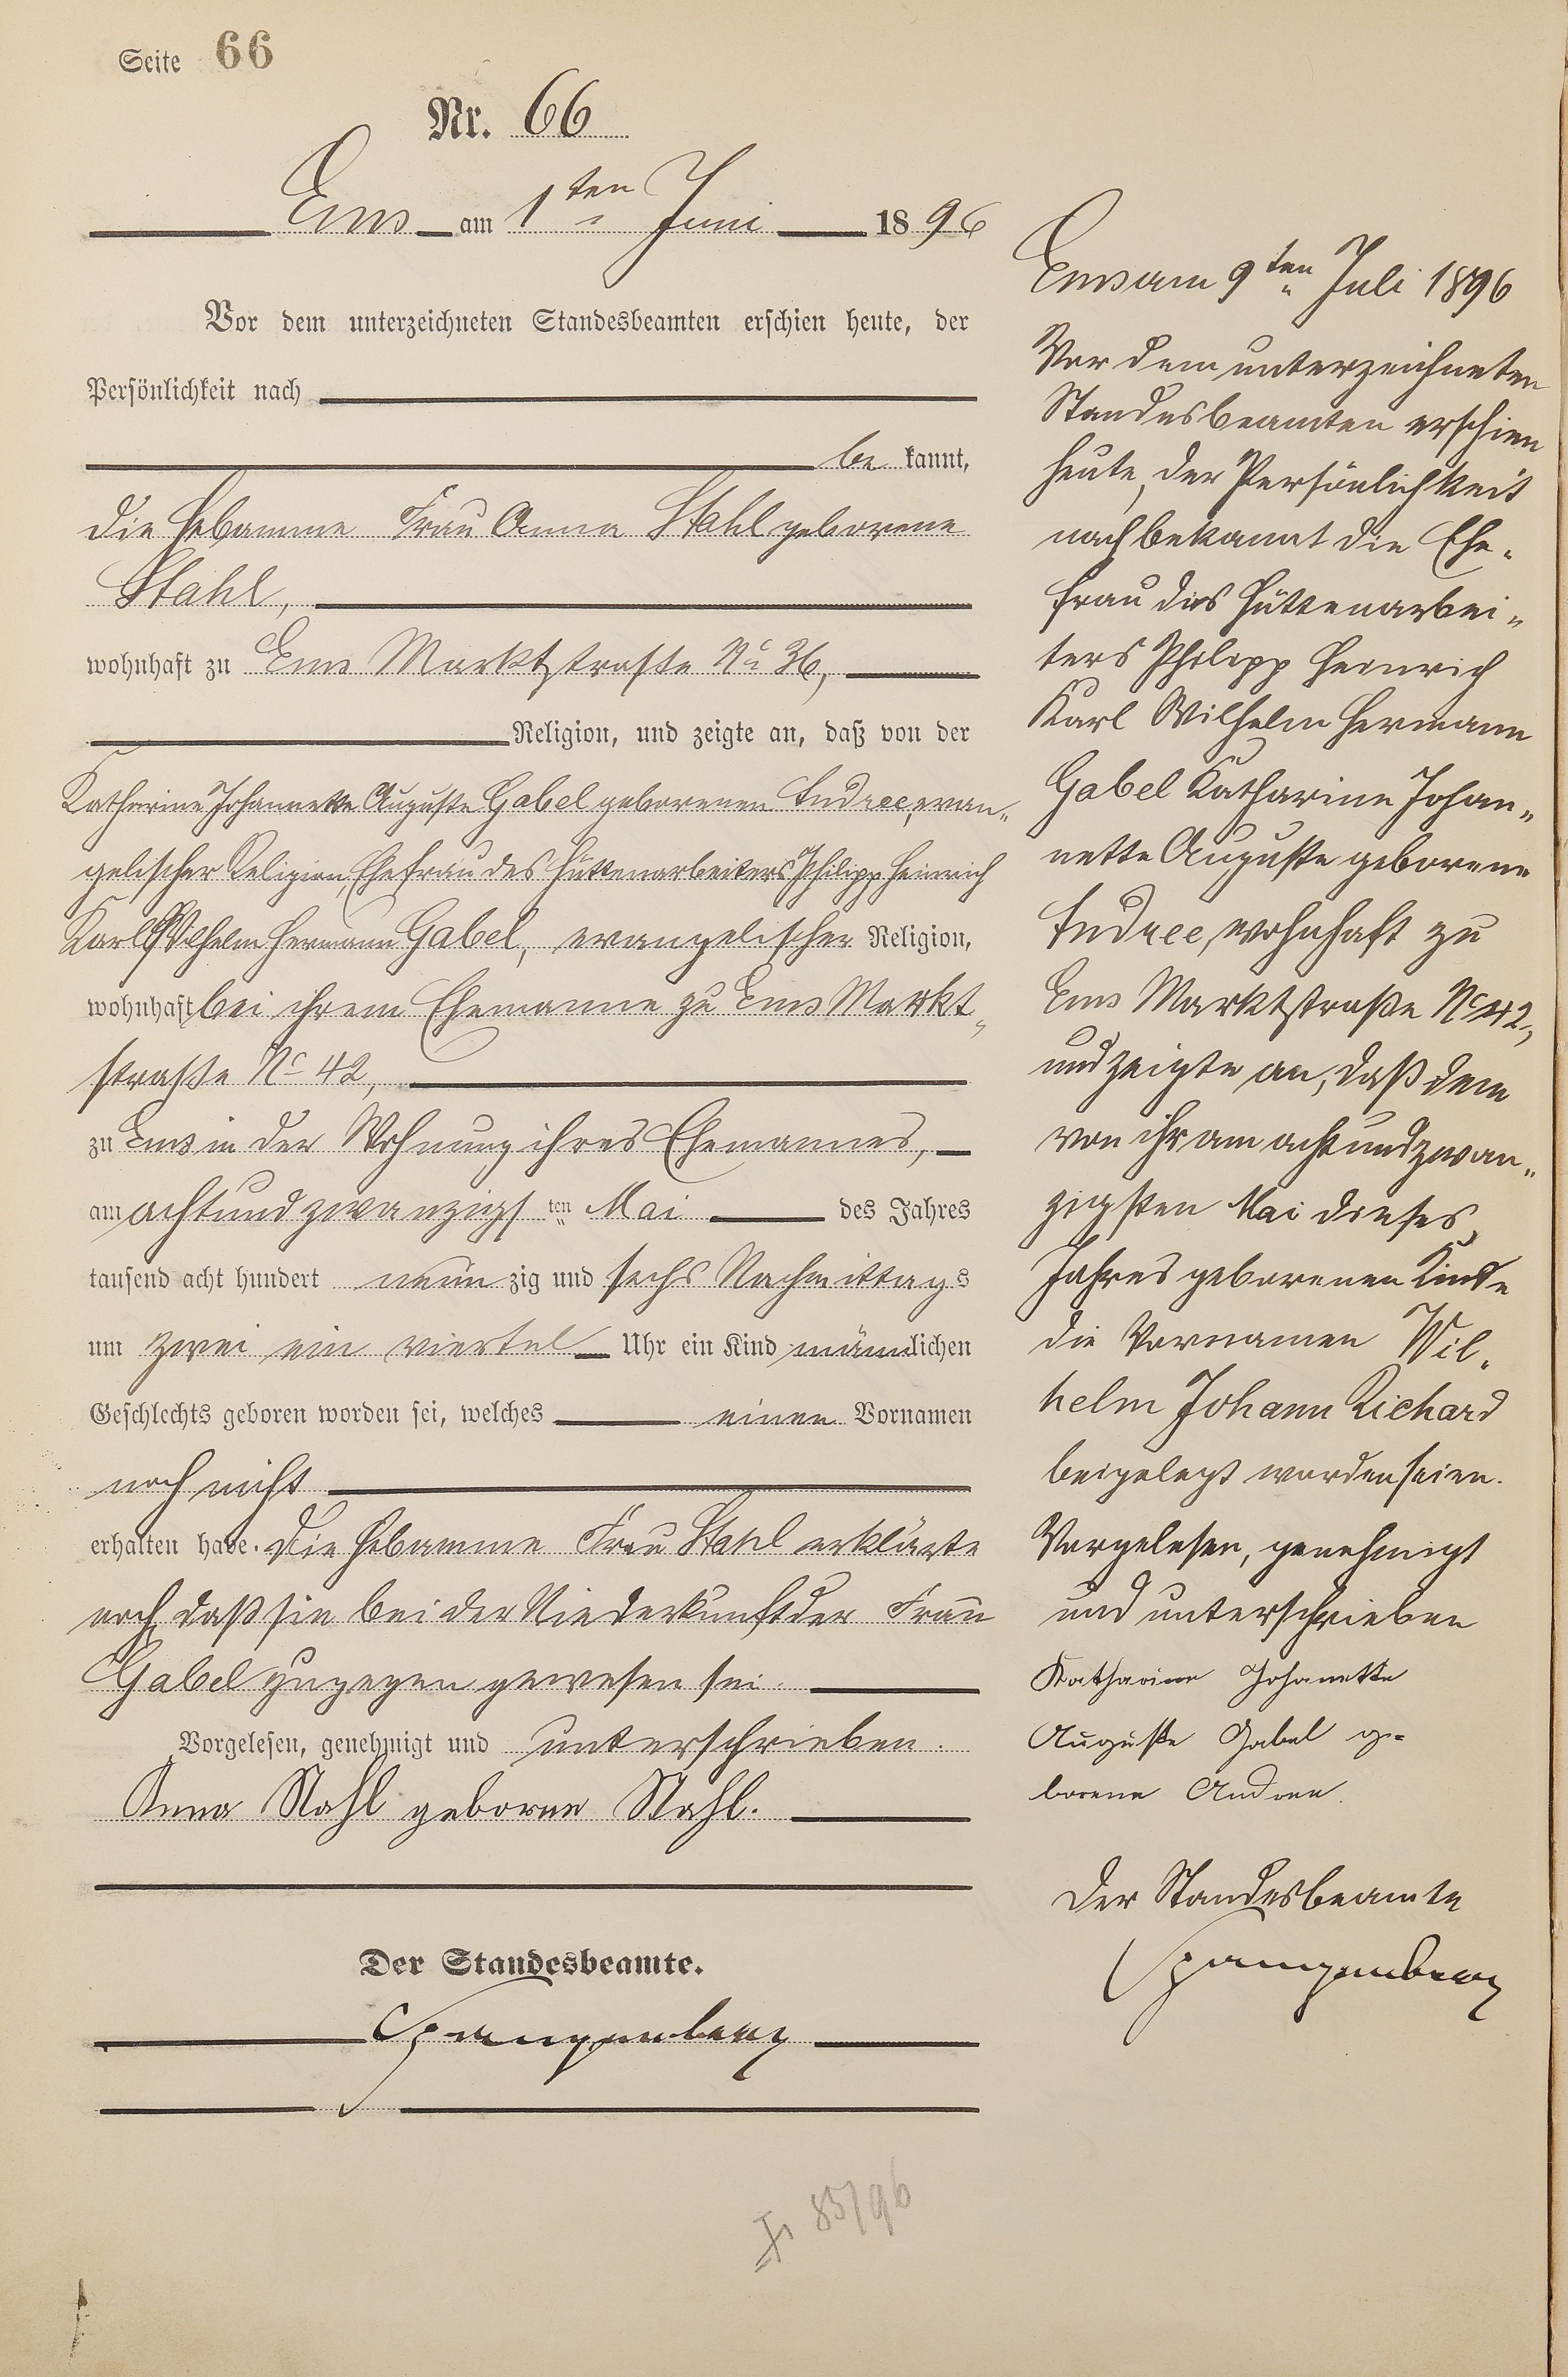 Seite 66
Nr. 66
Ems am 1ten Juni 1896
Vor dem unterzeichneten Standesbeamten erschien heute, der
Persönlichkeit nach
be kannt,
die Hebamme Frau Anna Stahl geborene
Stahl,
wohnhaft zu Ems Marktstraße No 36,
Religion, und zeigte an, daß von der
Katharine Johannette Auguste Gabel geborenen Andree, evan-
gelischer Religion, Ehefrau des Hüttenarbeiters Philipp Heinrich
Karl Wilhelm Hermann Gabel, evangelischer Religion,
wohnhaft bei ihrem Ehemanne zu Ems Markt-
straße No 42,
zu Ems in der Wohnung ihres Ehemannes,
am achtundzwanzigsten Mai des Jahres
tausend acht hundert neunzig und sechs Nachmittags
um zwei ein viertel Uhr ein Kind männlichen
Geschlechts geboren worden sei, welches einen Vornamen
noch nicht
erhalten habe. Die Hebamme Frau Stahl erklärte
noch daß sie bei der Niederkunft der Frau
Gabel zugegen gewesen sei.
Vorgelesen, genehmigt und unterschrieben.
Anna Stahl geborne Stahl.
Der Standesbeamte.
Spangenberg
Ems am 9ten Juli 1896
Vor dem unterzeichneten
Standesbeamten erschien
heute, der Persönlichkeit
nach bekannt die Ehe-
frau des Hüttenarbei-
ters Philipp Heinrich
Karl Wilhelm Hermann
Gabel Katharine Johan-
nette Auguste geborene
Andree, wohnhaft zu
Ems Marktstraße No 42,
und zeigte an, daß dem
von ihr am achtundzwan-
zigsten Mai dieses
Jahres geborenen Kinde
die Vornamen Wil-
helm Johann Richard
beigelegt worden seien.
Vorgelesen, genehmigt
und unterschrieben
Katharine Johanette
Auguste Gabel ge-
borene Andree.
Der Standesbeamte
Spangenberg
85/96